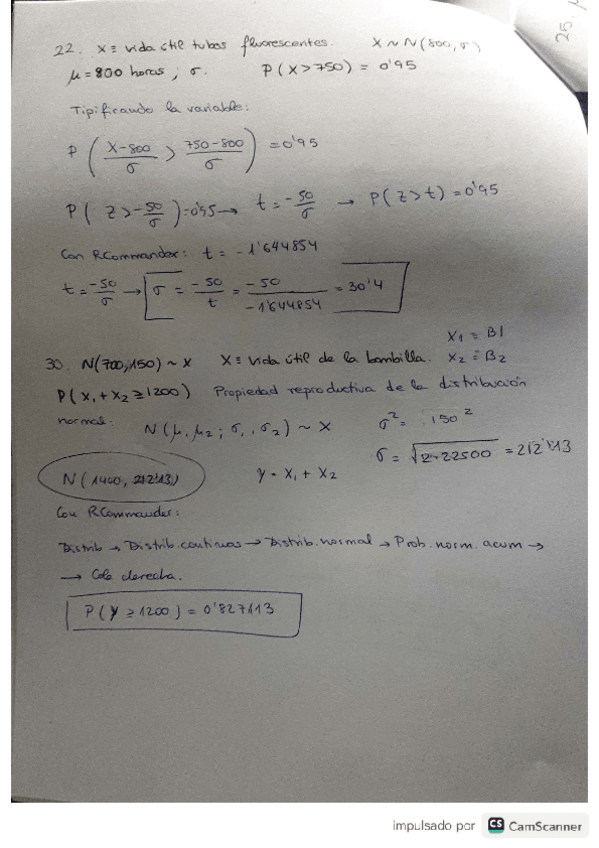 25.
22. X ≡ vida útil tubos fluorescentes. X ~ N(800, σ)
μ = 800 horas ; σ. P(X > 750) = 0'95
Tipificando la variable:
P ( X-800/σ > 750-800/σ ) = 0'95
P( Z > -50/σ ) = 0'95 → t = -50/σ → P(Z > t) = 0'95
Con RCommander: t = -1'644854
t = -50/σ → σ = -50/t = -50/-1'644854 = 30'4
X1 ≡ B1
30. N(700,150) ~ X X ≡ vida útil de la bombilla. X2 ≡ B2
P(X1 + X2 ≥ 1200) Propiedad reproductiva de la distribución
normal: N(μ1 μ2 ; σ1, σ2) ~ X σ² = 150²
σ = √2·22500 = 212'13
N(1400, 212'13) Y = X1 + X2
Con RCommander:
Distrib → Distrib.continuas → Distrib.normal → Prob.norm.acum →
→ Cola derecha.
P(Y ≥ 1200) = 0'827113
impulsado por CS CamScanner